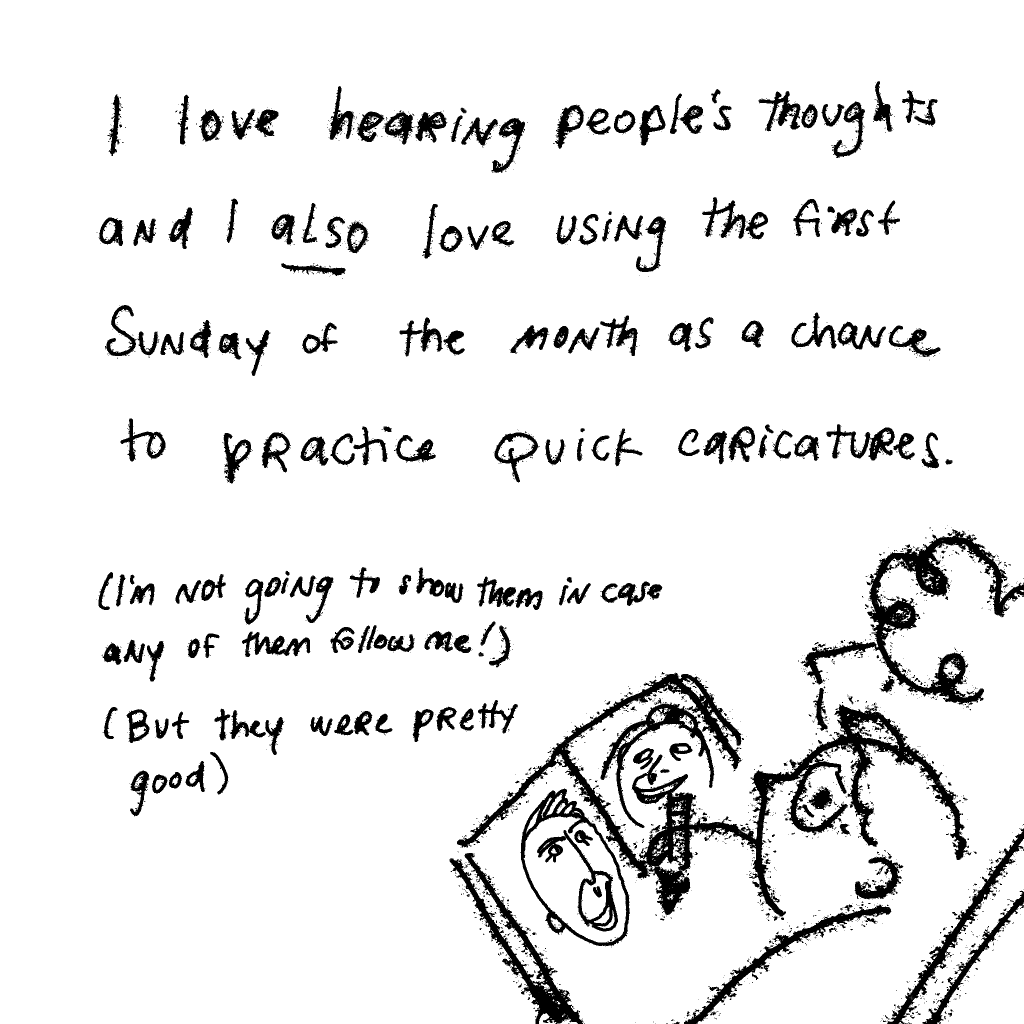 I love hearing people's thoughts
and I also love using the first
Sunday of the month as a chance
to practice quick caricatures.
(I'm not going to show them in case
any of them follow me!)
(But they were pretty
good)